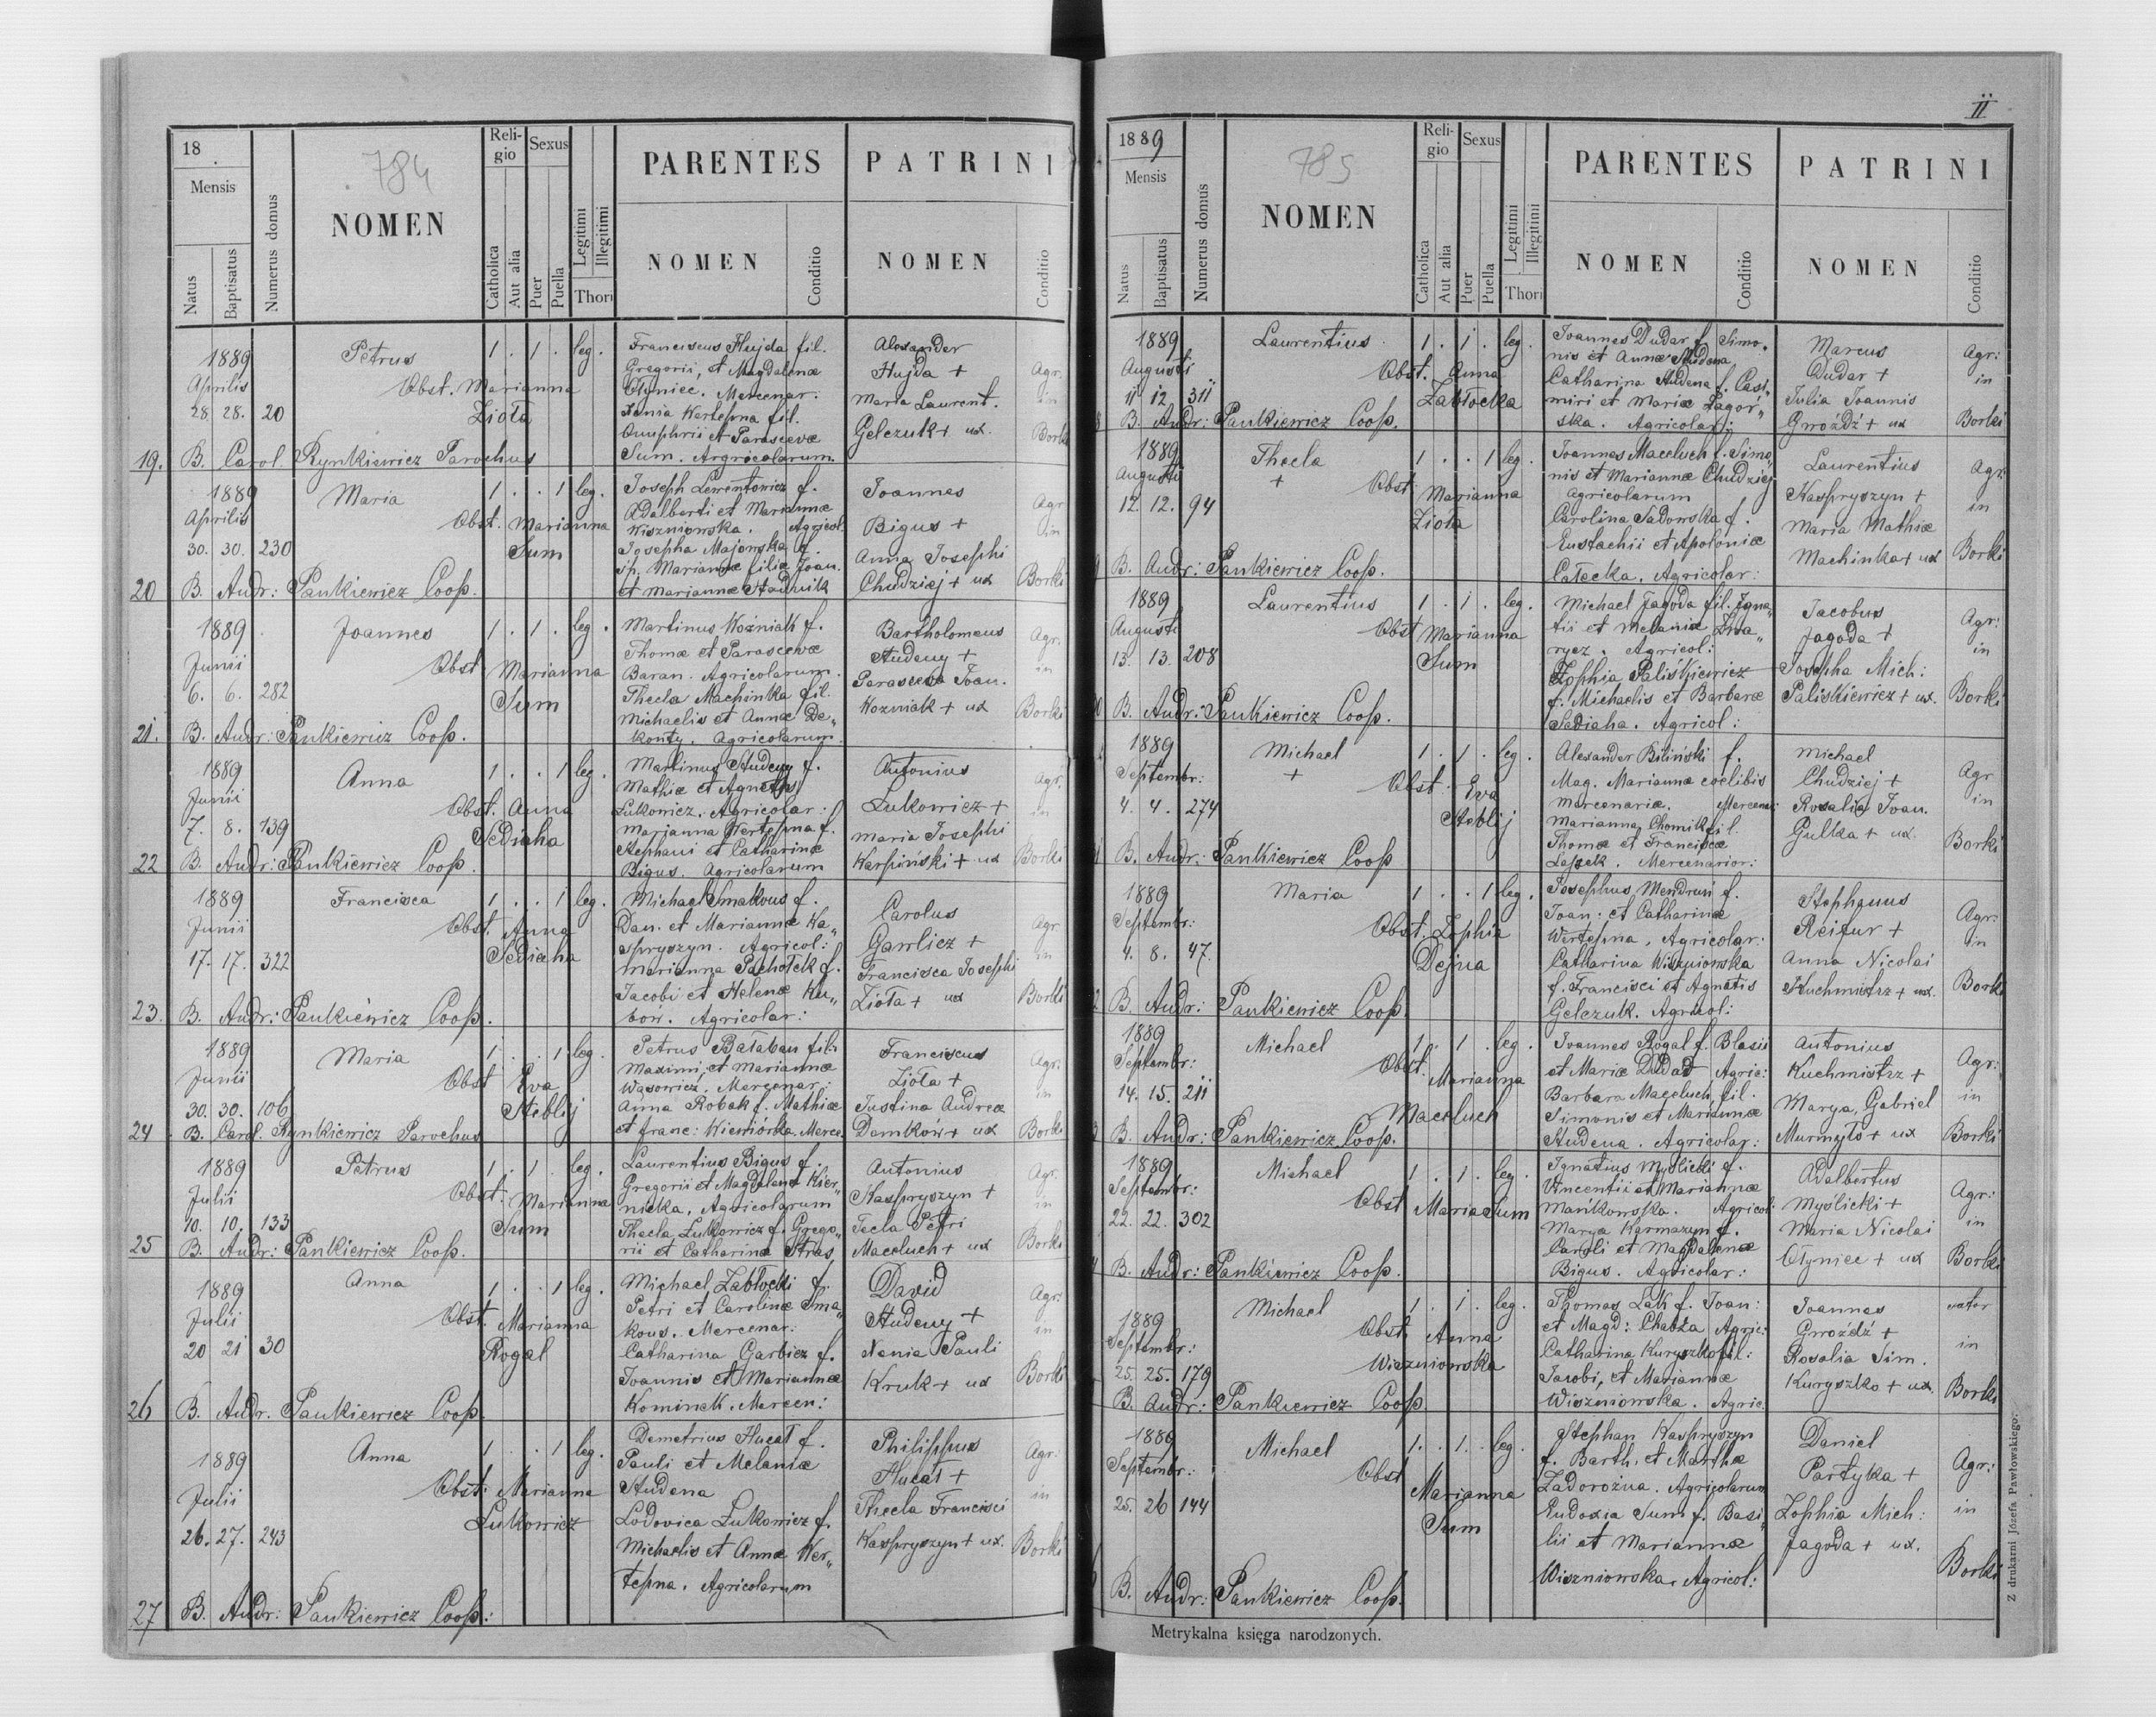 18
784
Mensis
Natus
Baptisatus
Numerus domus
NOMEN
Reli-
gio
Catholica
Aut alia
Sexus
Puer
Puella
Legitimi
Illegitimi
Thori
PARENTES
NOMEN
Conditio
PATRINI
NOMEN
Conditio
1889
Aprilis
28. 28. 20
Petrus
Obst. Marianna
Zioła
1 . 1 . leg.
Franciscus Hujda fil.
Gregorii, et Magdalenæ
Ołyniec. Mercenar.
Xenia Wertepna fil.
Onuphrii et Parascevæ
Sum. Argricolarum.
Alexander
Hujda +
Maria Laurent.
Gelczuk + ux.
Agr.
in
Borki
19. B. Carol. Rynkiewicz Parochus
1889
Aprilis
30. 30. 230
Maria
Obst. Marianna
Sum
1 . . 1 leg.
Joseph Lewentowicz f.
Adalberti et Mariannæ
Wiszniowska. Agricol.
Josepha Majowska f.
sp. Mariannæ filiæ Joan.
et Mariannæ Stadnik
Joannes
Bigus +
Anna Josephi
Chudziej + ux
Agr
in
Borki
20 B. Andr: Pankiewicz Coop.
1889
Junii
6. 6. 282
Joannes
Obst Marianna
Sum
1 . 1 . leg.
Martinus Woźniak f.
Thomæ et Parascevæ
Baran. Agricolarum.
Thecla Machinka fil.
Michaelis et Annæ De„
konty. Agricolarum
Bartholomeus
Studeny +
Parasceva Joan.
Wozniak + ux
Agr.
in
Borki
21. B. Andr: Pankiewicz Coop.
1889
Junii
7. 8. 139
Anna
Obst. Anna
Sediaha
1 . . 1 leg.
Martinus Studeny f.
Mathiæ et Agnetis
Lukowicz. Agricolar:
Marianna Wertepna f.
Stephani et Catharinæ
Bigus. Agricolarum
Antonius
Lukowicz +
Maria Josephi
Karpiński + ux
Agr.
in
Borki
22 B. Andr: Pankiewicz Coop.
1889
Junii
17. 17. 322
Francisca
Obst. Anna
Sediaha
1 . . 1 leg.
Michael Smakous f.
Dan. et Mariannæ Ka„
spryszyn. Agricol:
Marianna Pachołek f.
Jacobi et Helenæ Ku„
bów. Agricolar:
Carolus
Garlicz +
Francisca Josephi
Zioła + ux
Agr.
in
Borki
23. B. Andr: Pankiewicz Coop.
1889
Junii
30. 30. 106
Maria
Obst Eva
Steblij
1 . . 1 leg.
Petrus Bałaban fil.
Maximi, et Mariannæ
Wąsowicz. Mercenar:
Anna Robak f. Mathiæ
et Franc: Wiewiórka. Merce.
Franciscus
Zioła +
Justina Andreæ
Domków + ux
Agr.
in
Borki
24 B. Carol. Rynkiewicz Parochus
1889
Julii
10. 10. 133
Petrus
Obst: Marianna
Sum
1 . 1 . leg.
Laurentius Bigus f.
Gregorii et Magdalenæ Kier„
nicka, Agricolarum
Thecla Lukowicz f. Grego„
rii et Catharinæ Stras
Antonius
Kaspryszyn +
Tecla Petri
Maceluch + ux
Agr.
in
Borki
25 B. Andr: Pankiewicz Coop.
1889
Julii
20 21 30
Anna
Obst. Marianna
Rogal
1 . . 1 leg.
Michael Zabłocki f.
Petri et Carolinæ Sma„
kous. Mercenar:
Catharina Garbicz f.
Joannis et Mariannæ
Kominek. Mercen:
David
Studeny +
Xenia Pauli
Kruk + ux
Agr:
in
Borki
26 B. Andr. Pankiewicz Coop.
1889
Julii
26. 27. 243
Anna
Obst: Marianna
Lukowicz
1 . . 1 leg.
Demetrius Hucał f.
Pauli et Melaniæ
Studena
Lodovica Łukowicz f.
Michaelis et Annæ Wer„
tepna. Agricolarum
Philippus
Hucał +
Thecla Francisci
Kaspryszyn + ux.
Agr:
in
Borki
27 B. Andr: Pankiewicz Coop:
II
1889
785
Mensis
Natus
Baptisatus
Numerus domus
NOMEN
Reli-
gio
Catholica
Aut alia
Sexus
Puer
Puella
Legitimi
Illegitimi
Thori
PARENTES
NOMEN
Conditio
PATRINI
NOMEN
Conditio
1889
Augusti
11 12. 311
Laurentius
Obst. Anna
Zabłocka
1 . 1 . leg.
Joannes Dudar f. Simo„
nis et Annæ Studena
Catharina Studena f. Casi„
miri et Mariæ Zagór„
ska. Agricolar:
Marcus
Dudar +
Julia Joannis
Gwóźdź + ux
Agr:
in
Borki
B. Andr: Pankiewicz Coop.
1889
Augusti
12. 12. 94
Thecla
+
Obst Marianna
Zioła
1 . . 1 leg.
Joannes Maceluch f. Simo„
nis et Mariannæ Chudziej
Agricolarum
Carolina Sadowska f.
Eustachii et Apoloniæ
Całecka. Agricolar:
Laurentius
Kaspryszyn +
Maria Mathiæ
Machinka + ux
Agr:
in
Borki
B. Andr: Pankiewicz Coop.
1889
Augusti
13. 13. 208
Laurentius
Obst Marianna
Sum
1 . 1 . leg.
Michael Jagoda fil. Igna„
tii et Melaniæ Zwa„
rycz. Agricol:
Zophia Paliśkiewicz
f. Michaelis et Barbaræ
Sediaha. Agricol:
Jacobus
Jagoda +
Josepha Mich:
Paliśkiewicz + ux.
Agr:
in
Borki
B. Andr: Pankiewicz Coop.
1889
Septembr:
4. 4. 274
Michael
+
Obst: Eva
Steblij
1 . 1 . leg.
Alexander Biliński f.
Mag. Mariannæ coelibis
mercenariæ. Mercenar:
Marianna Chomik fil.
Thomæ et Franciscæ
Lejzek. Mercenarior:
Michael
Chudziej +
Rosalia Joan.
Gulka + ux.
Agr
in
Borki
B. Andr: Pankiewicz Coop
1889
Septembr:
4. 8. 47.
Maria
Obst. Zophia
Dejna
1 . . 1 leg.
Josephus Mendrun f.
Joan: et Catharinæ
Wertepna, Agricolar:
Catharina Wiszniowska
f. Francisci et Agnetis
Gelczuk. Agricol:
Stephanus
Reifur +
Anna Nicolai
Kuchmistrz + ux.
Agr:
in
Borki
B. Andr: Pankiewicz Coop.
1889
Septembr:
14. 15. 211
Michael
Obst. Marianna
Maceluch
1 . 1 . leg.
Joannes Rogal f. Blasii
et Mariæ Dudad Agric:
Barbara Maceluch, fil.
Simonis et Mariannæ
Studena. Agricolar:
Antonius
Kuchmistrz +
Marya, Gabriel
Murmyło + ux
Agr:
in
Borki
B. Andr: Pankiewicz Coop.
1889
Septembr:
22. 22. 302
Michael
Obst Maria Sum
1 . 1 . leg.
Ignatius Myślicki f.
Vincentii et Mariannæ
Mańkowska. Agricol:
Marya Karmazyn f.
Caroli et Magdalenæ
Bigus. Agricolar:
Adalbertus
Myślicki +
Maria Nicolai
Ołyniec + ux
Agr:
in
Borki
B. Andr: Pankiewicz Coop.
1889
Septembr:
25. 25. 179
Michael
Obst Anna
Wiszniowska
1 . 1 . leg.
Thomas Lak f. Joan:
et Magd: Chabza Agric:
Catharina Kuryszko fil:
Jacobi, et Mariannæ
Wiszniowska. Agric.
Joannes
Gwoźdź +
Rosalia Sim.
Kuryszko + ux.
in
Borki
B. Andr: Pankiewicz Coop.
1889
Septembr:
25. 26 144
Michael
Obst Marianna
Sum
1 . 1 . leg.
Stephan Kaspryszyn
f. Barth. et Marthæ
Zadorożna. Agricolarum
Eudoxia Sum f. Basi„
lii et Mariannæ
Wiszniowska. Agricol:
Daniel
Partyka +
Zophia Mich:
Jagoda + ux.
Agr:
in
Borki
B. Andr: Pankiewicz Coop.
Metrykalna księga narodzonych.
Z drukarni Józefa Pawłowskiego.